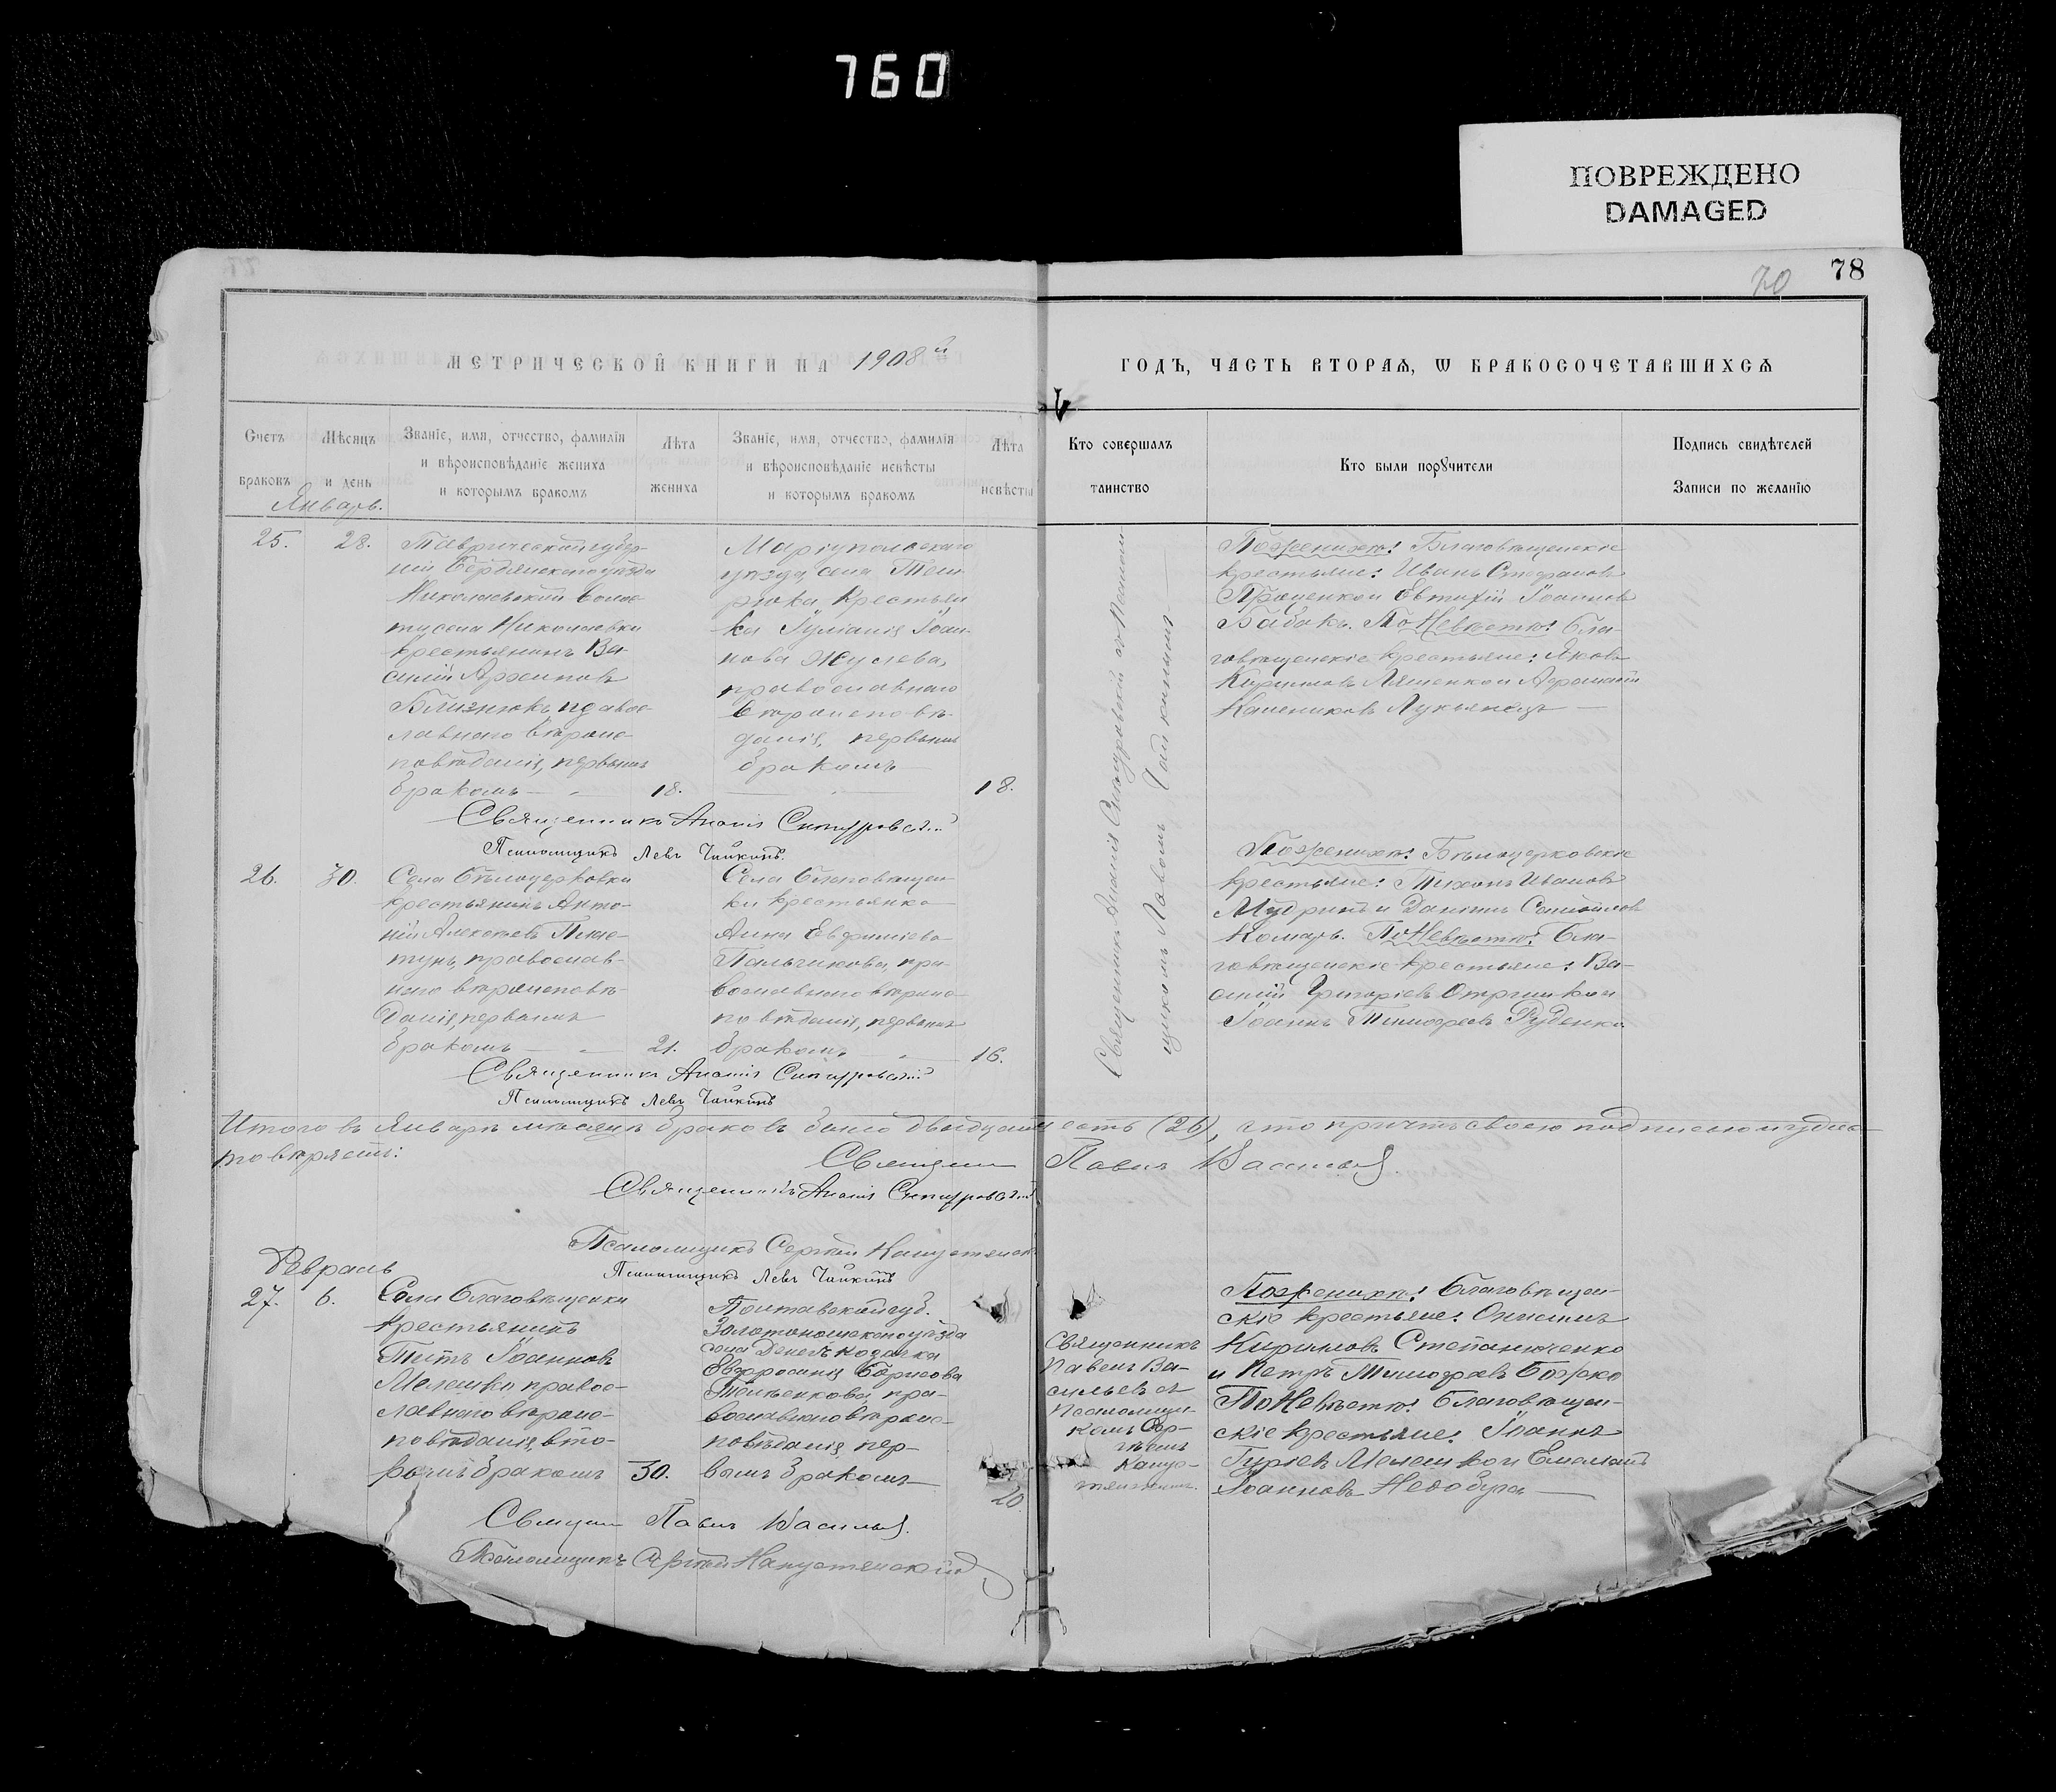 760
ПОВРЕЖДЕНО
DAMAGED
78
70
МЕТРИЧЕСКОЙ КНИГИ НА 1908й
ГОДЪ, ЧАСТЬ ВТОРАѦ, Ѡ БРАКОСОЧЕТАВШИХСѦ
Счетъ
браковъ
Мѣсяцъ
и день
Званіе, имя, отчество, фамилія
и вѣроисповѣданіе жениха
и которымъ бракомъ
Лѣта
жениха
Званіе, имя, отчество, фамилія
и вѣроисповѣданіе невѣсты
и которымъ бракомъ
Лѣта
невѣсты
Кто совершалъ
таинство
Кто были порꙋчители
Подпись свидѣтелей
Записи по желанію
Январь.
25.
28.
Таврической губер-
ніи Бердянскаго уѣзда
Николаевской волос-
ти села Николаевки
крестьянинъ Ва-
силій Архиповъ
Близнюкъ, правос-
лавнаго вѣроис-
повѣданія, первымъ
бракомъ
18.
Маріупольскаго
уѣзда, села Тем-
рюка, крестьян
ка Іуліанія Іоан-
нова Жуслева,
православнаго
вѣроисповѣ-
данія, первымъ
бракомъ
18.
Священникъ Ананія Ситуровскій съ Псаломщикомъ Львомъ Чайкинымъ
По женихѣ: Благовѣщенскіе
крестьяне: Иванъ Стефановъ
Проценко и Евтихій Іоанновъ
Бабакъ. По Невѣстѣ: Бла-
говѣщенскіе крестьяне: Яковъ
Кириловъ Ляшенко и Афанасій
Лукьянецъ
Священникъ Ананія Ситуровскій
Псаломщикъ Левъ Чайкинъ.
26.
30.
Села Бѣлоцерковки
крестьянинъ Анто-
ній Алексѣевъ
православ-
наго вѣроисповѣ-
данія, первымъ
бракомъ
21.
Села Благовѣщен-
ки крестьянка
Анна Евфиміева
Пальчикова, пра-
вославнаго вѣроис-
повѣданія, первымъ
бракомъ
16.
По женихѣ: Бѣлоцерковскіе
крестьяне: Тихонъ Ивановъ
Мудрикъ и Даніилъ Самойловъ
Комаръ. По Невѣстѣ: Бла-
говѣщенскіе крестьяне: Ва-
силій Григоріевъ и
Іоаннъ Тимофеевъ Руденко
Священникъ Ананія Ситуровскій
Псаломщикъ Левъ Чайкинъ
Итого въ Январѣ мѣсяцѣ браковъ было двадцать шесть (26), что причтъ своею подписью и удос-
товѣряетъ:
Священникъ Павелъ Васильевъ.
Священникъ Ананія Ситуровскій
Псаломщикъ Сергѣй Капустянск
Псаломщикъ Левъ Чайкинъ
Февраль
27.
6.
Села Благовѣщенки
крестьянинъ
Титъ Іоанновъ
Мелешко, правос-
лавнаго вѣроис-
повѣданія, вто-
рымъ бракомъ
30.
Полтавской губ.
Золотоношскаго уѣзда
села Денегъ козачка
Евфросинія Борисова
пра-
вославнаго вѣроис-
повѣданія, пер-
вымъ бракомъ
20
Священникъ
Павелъ Ва-
сильевъ съ
Псаломщи-
комъ Сер-
гѣемъ
Капус-
тянскимъ.
По женихѣ: Благовѣщен-
скіе крестьяне: Онисимъ
Кириловъ Степанюченко
и Петръ Тимофеевъ Божко
По Невѣстѣ: Благовѣщен-
скіе крестьяне: Іоаннъ
Гуріевъ Мелешко и Емеліанъ
Іоанновъ
Священникъ Павелъ Васильевъ.
Псаломщикъ Сергѣй Капустянскій